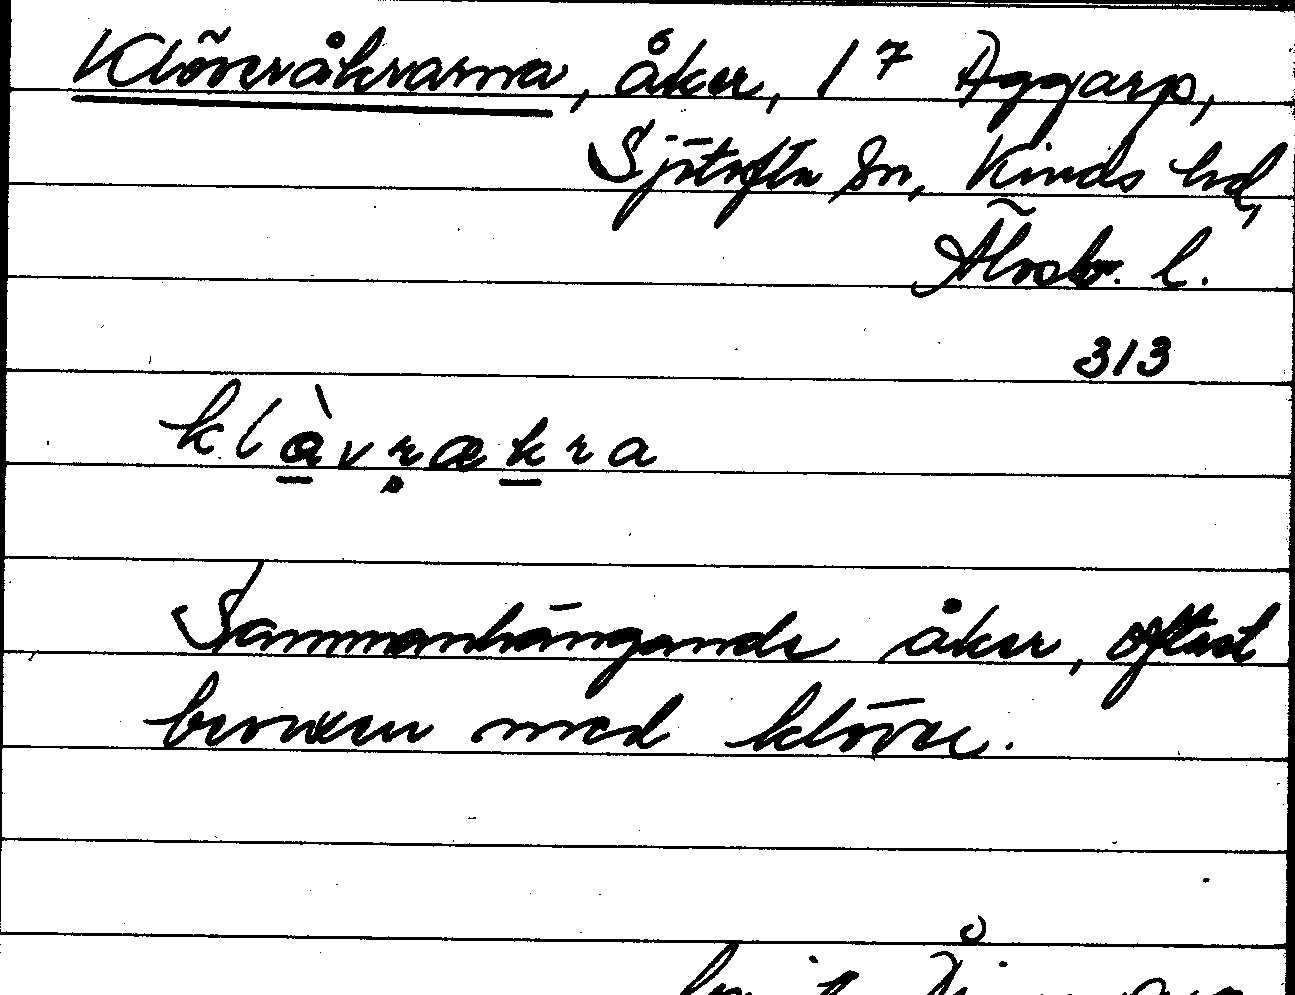 Klöveråkrarna, åker, 1⁷ Aggarp,
Sjötofta sn, Kinds hd,
Älvsbr. l.
313
klàvrækra
Sammanhängande åker, oftast
bevuxen med klöver.